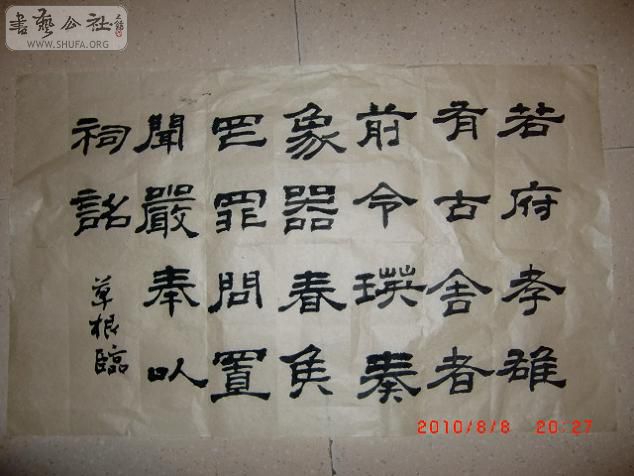 若府孝雄
有古舍者
前令瑛奏
象器春侯
罒罪問置
聞嚴奉以
祠銘
草根臨
書藝公社
WWW.SHUFA.ORG
2010/8/8 20:27